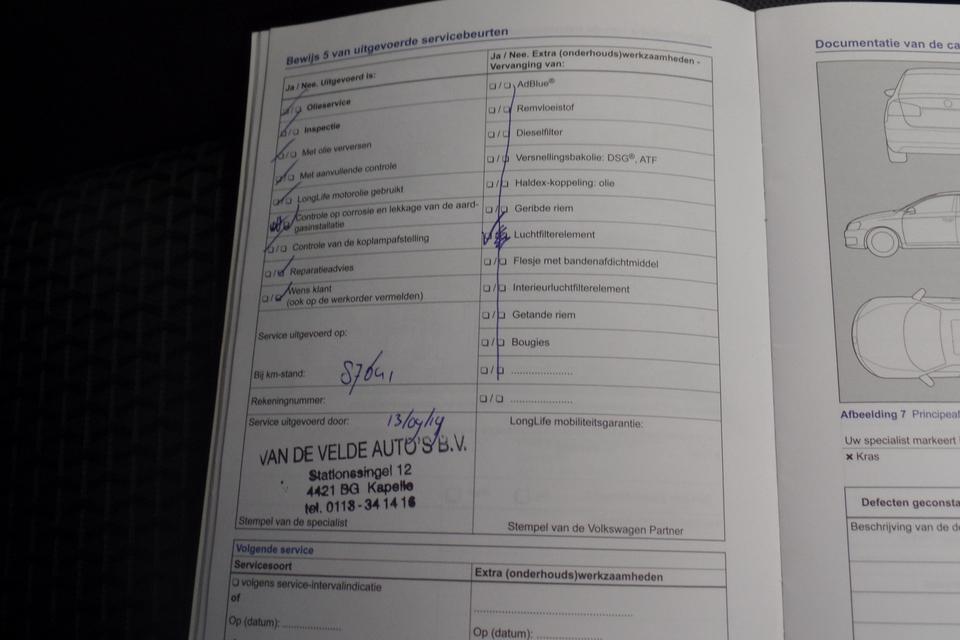 Bewijs 5 van uitgevoerde servicebeurten
Ja / Nee. Uitgevoerd is:
Olieservice
Inspectie
Met olie verversen
Met aanvullende controle
LongLife motorolie gebruikt
Controle op corrosie en lekkage van de aard-
gasinstallatie
Controle van de koplampafstelling
Reparatieadvies
Wens klant
(ook op de werkorder vermelden)
Service uitgevoerd op:
Bij km-stand:
Rekeningnummer:
Service uitgevoerd door: 13/09/19
VAN DE VELDE AUTO'S B.V.
Stationssingel 12
4421 BG Kapelle
tel. 0113-341416
Stempel van de specialist
Ja / Nee. Extra (onderhouds)werkzaamheden -
Vervanging van:
AdBlue®
Remvloeistof
Dieselfilter
Versnellingsbakolie: DSG®, ATF
Haldex-koppeling: olie
Geribde riem
Luchtfilterelement
Flesje met bandenafdichtmiddel
Interieurluchtfilterelement
Getande riem
Bougies
LongLife mobiliteitsgarantie:
Stempel van de Volkswagen Partner
Volgende service
Servicesoort
volgens service-intervalindicatie
of
Op (datum): ....................
Extra (onderhouds)werkzaamheden
Op (datum): ....................
Documentatie van de ca
Afbeelding 7 Principeaf
Uw specialist markeert
× Kras
Defecten geconsta
Beschrijving van de d